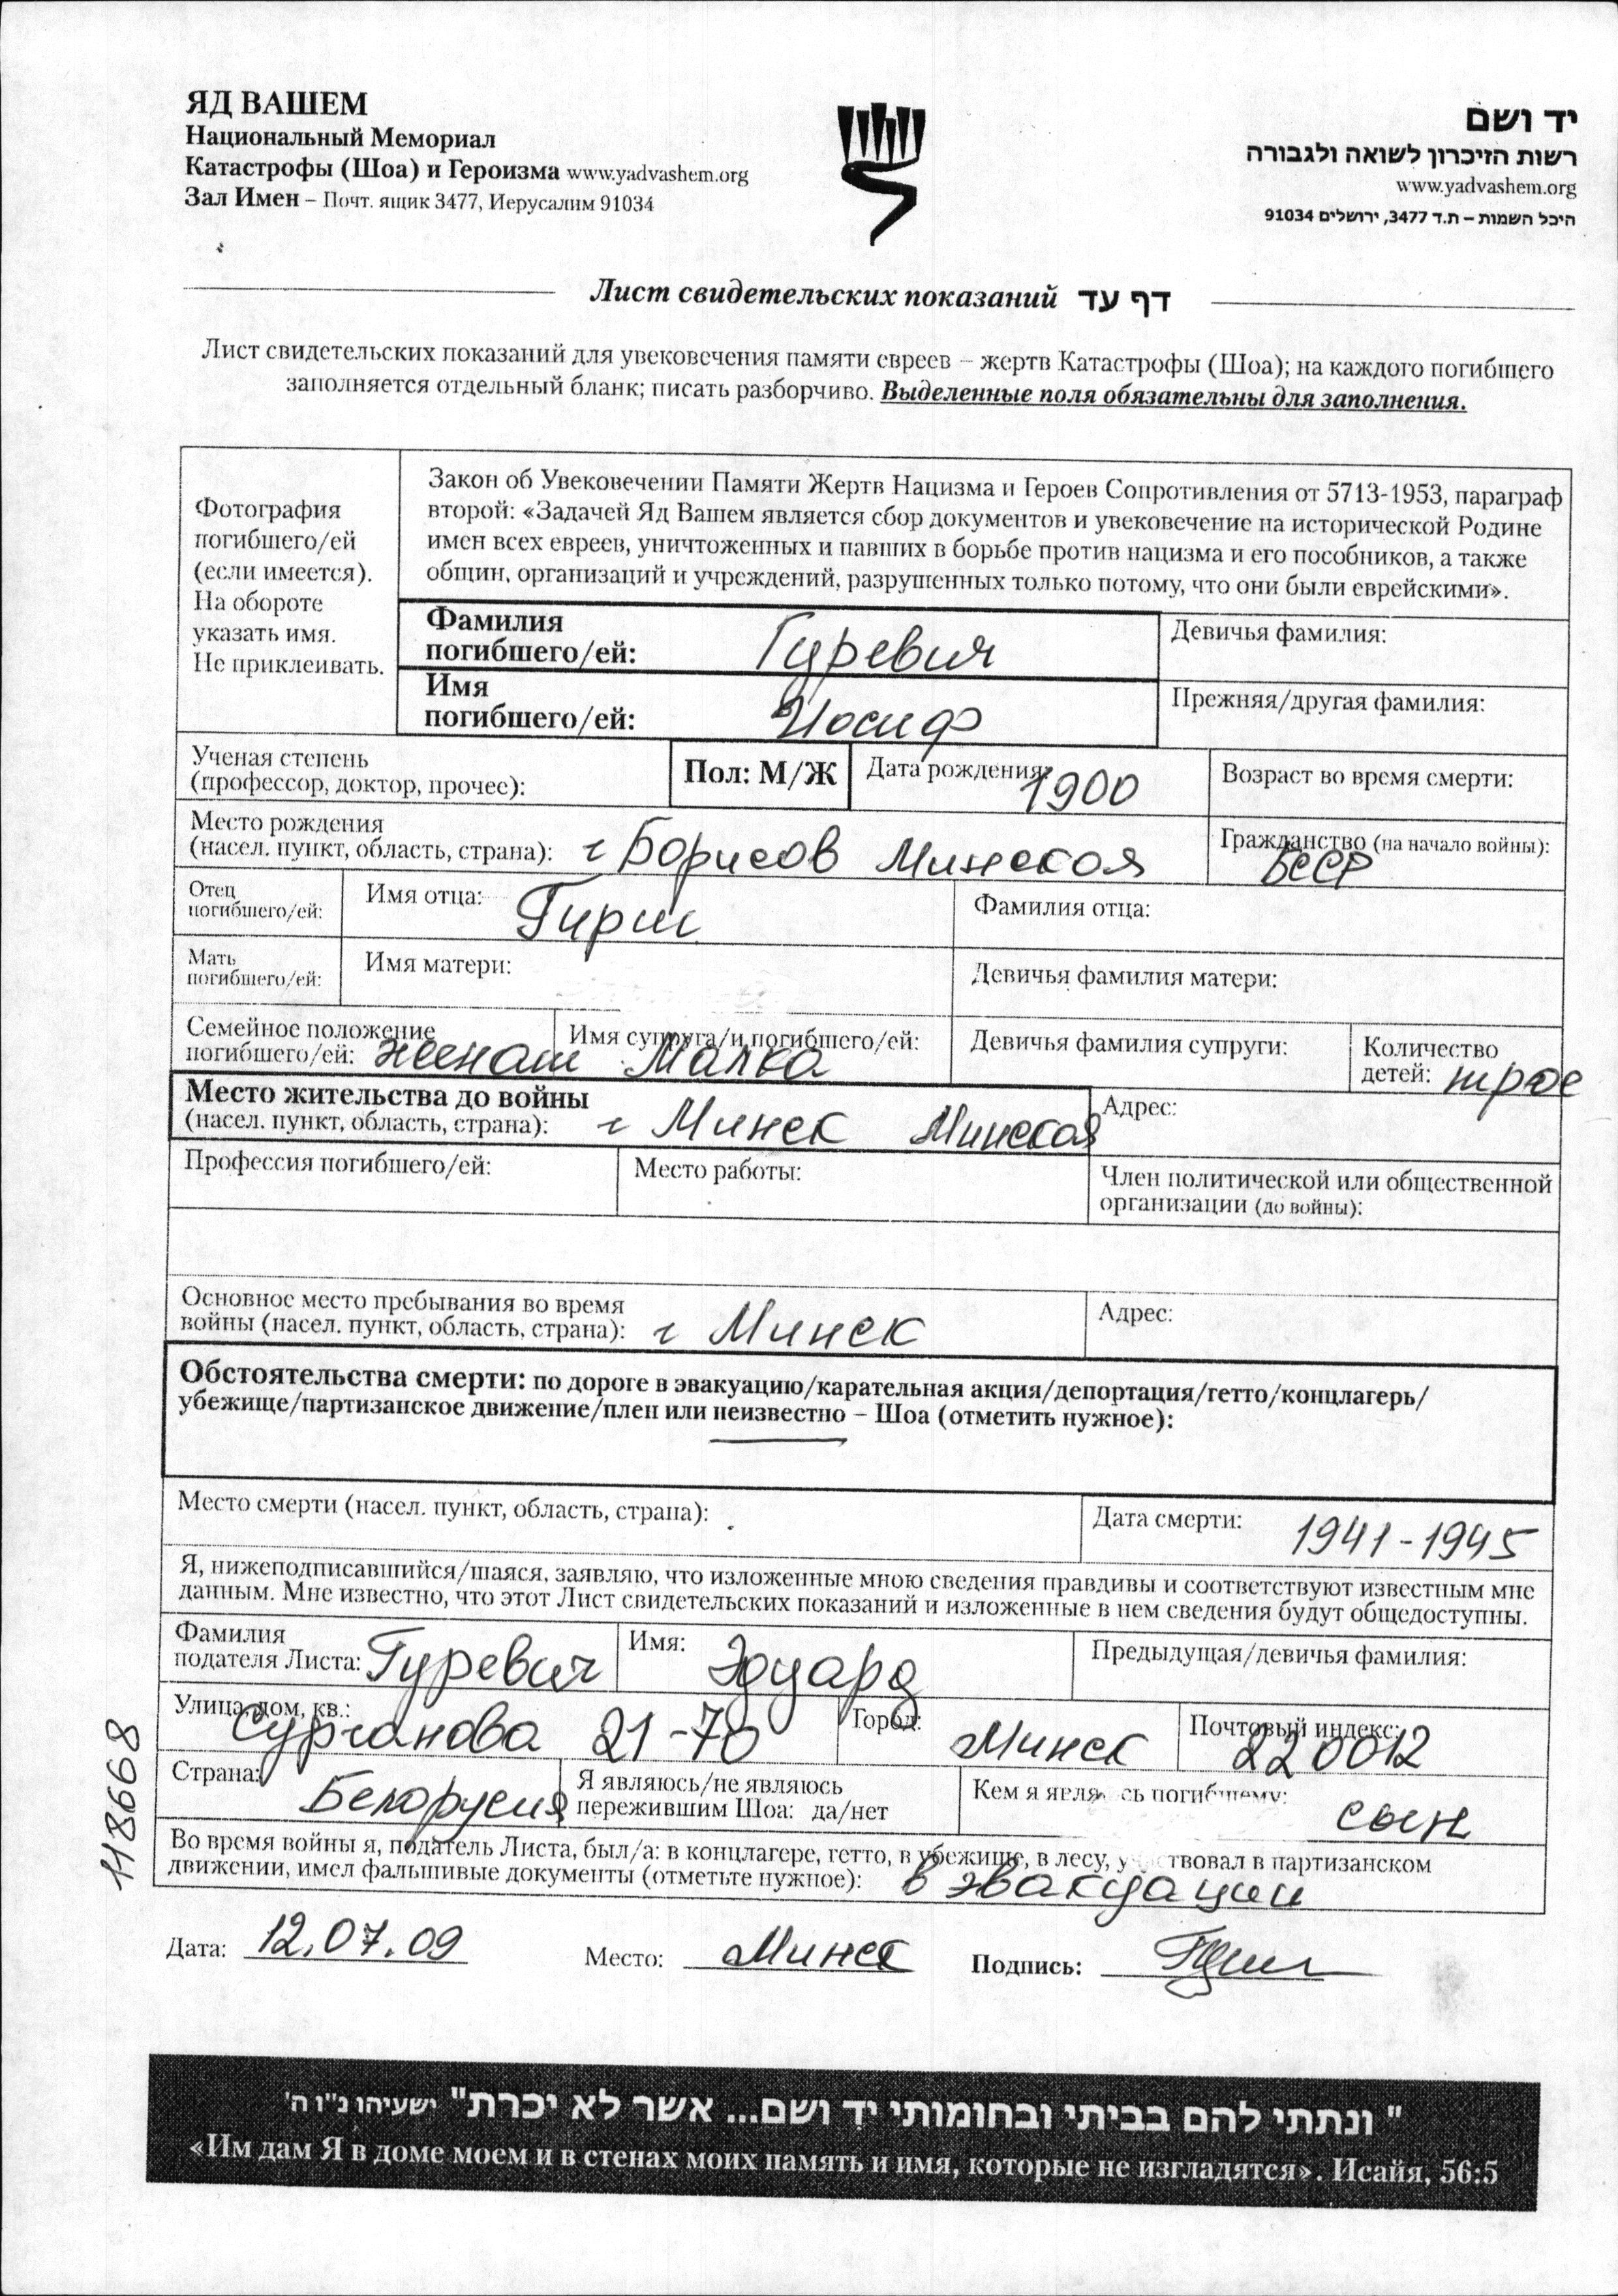 ЯД ВАШЕМ
Национальный Мемориал
Катастрофы (Шоа) и Героизма www.yadvashem.org
Зал Имен – Почт. ящик 3477, Иерусалим 91034
יד ושם
רשות הזיכרון לשואה ולגבורה
www.yadvashem.org
היכל השמות – ת.ד 3477, ירושלים 91034
Лист свидетельских показаний דף עד
Лист свидетельских показаний для увековечения памяти евреев – жертв Катастрофы (Шоа); на каждого погибшего
заполняется отдельный бланк; писать разборчиво. Выделенные поля обязательны для заполнения.
Фотография
погибшего/ей
(если имеется).
На обороте
указать имя.
Не приклеивать.
Закон об Увековечении Памяти Жертв Нацизма и Героев Сопротивления от 5713-1953, параграф
второй: «Задачей Яд Вашем является сбор документов и увековечение на исторической Родине
имен всех евреев, уничтоженных и павших в борьбе против нацизма и его пособников, а также
общин, организаций и учреждений, разрушенных только потому, что они были еврейскими».
Фамилия
погибшего/ей: Гуревич
Девичья фамилия:
Имя
погибшего/ей: Иосиф
Прежняя/другая фамилия:
Ученая степень
(профессор, доктор, прочее):
Пол: М/Ж
Дата рождения: 1900
Возраст во время смерти:
Место рождения
(насел. пункт, область, страна): г Борисов Минская
Гражданство (на начало войны):
БССР
Отец
погибшего/ей:
Имя отца: Гирш
Фамилия отца:
Мать
погибшего/ей:
Имя матери:
Девичья фамилия матери:
Семейное положение
погибшего/ей: женат
Имя супруга/и погибшего/ей:
Малка
Девичья фамилия супруги:
Количество
детей: трое
Место жительства до войны
(насел. пункт, область, страна): г Минск Минская
Адрес:
Профессия погибшего/ей:
Место работы:
Член политической или общественной
организации (до войны):
Основное место пребывания во время
войны (насел. пункт, область, страна): г Минск
Адрес:
Обстоятельства смерти: по дороге в эвакуацию/карательная акция/депортация/гетто/концлагерь/
убежище/партизанское движение/плен или неизвестно – Шоа (отметить нужное):
Место смерти (насел. пункт, область, страна):
Дата смерти: 1941-1945
Я, нижеподписавшийся/шаяся, заявляю, что изложенные мною сведения правдивы и соответствуют известным мне
данным. Мне известно, что этот Лист свидетельских показаний и изложенные в нем сведения будут общедоступны.
Фамилия
подателя Листа: Гуревич
Имя: Эдуард
Предыдущая/девичья фамилия:
Улица, дом, кв.:
Сурганова 21-70
Город: Минск
Почтовый индекс:
220012
Страна: Белорусия
Я являюсь/не являюсь
пережившим Шоа: да/нет
Кем я являюсь погибшему: сын
Во время войны я, податель Листа, был/а: в концлагере, гетто, в убежище, в лесу, участвовал в партизанском
движении, имел фальшивые документы (отметьте нужное): в эвакуации
Дата: 12.07.09 Место: Минск Подпись:
118668
" ונתתי להם בביתי ובחומותי יד ושם... אשר לא יכרת" ישעיהו נ"ו ה'
«Им дам Я в доме моем и в стенах моих память и имя, которые не изгладятся». Исайя, 56:5